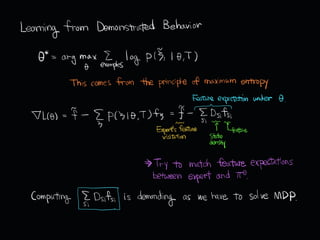 Learning from Demonstrated Behavior
θ* = arg max_θ Σ_examples log P(ζ̃ | θ, T)
This comes from the principle of maximum entropy
Feature expectation under θ
∇L(θ) = f̃ − Σ_ζ P(ζ | θ, T) f_ζ = f̃ − Σ_{s_i} D_{s_i} f_{s_i}
Expert's feature visitation
State density
feature
→ Try to match feature expectations
between expert and π^θ.
Computing Σ_{s_i} D_{s_i} f_{s_i} is demanding as we have to solve MDP.